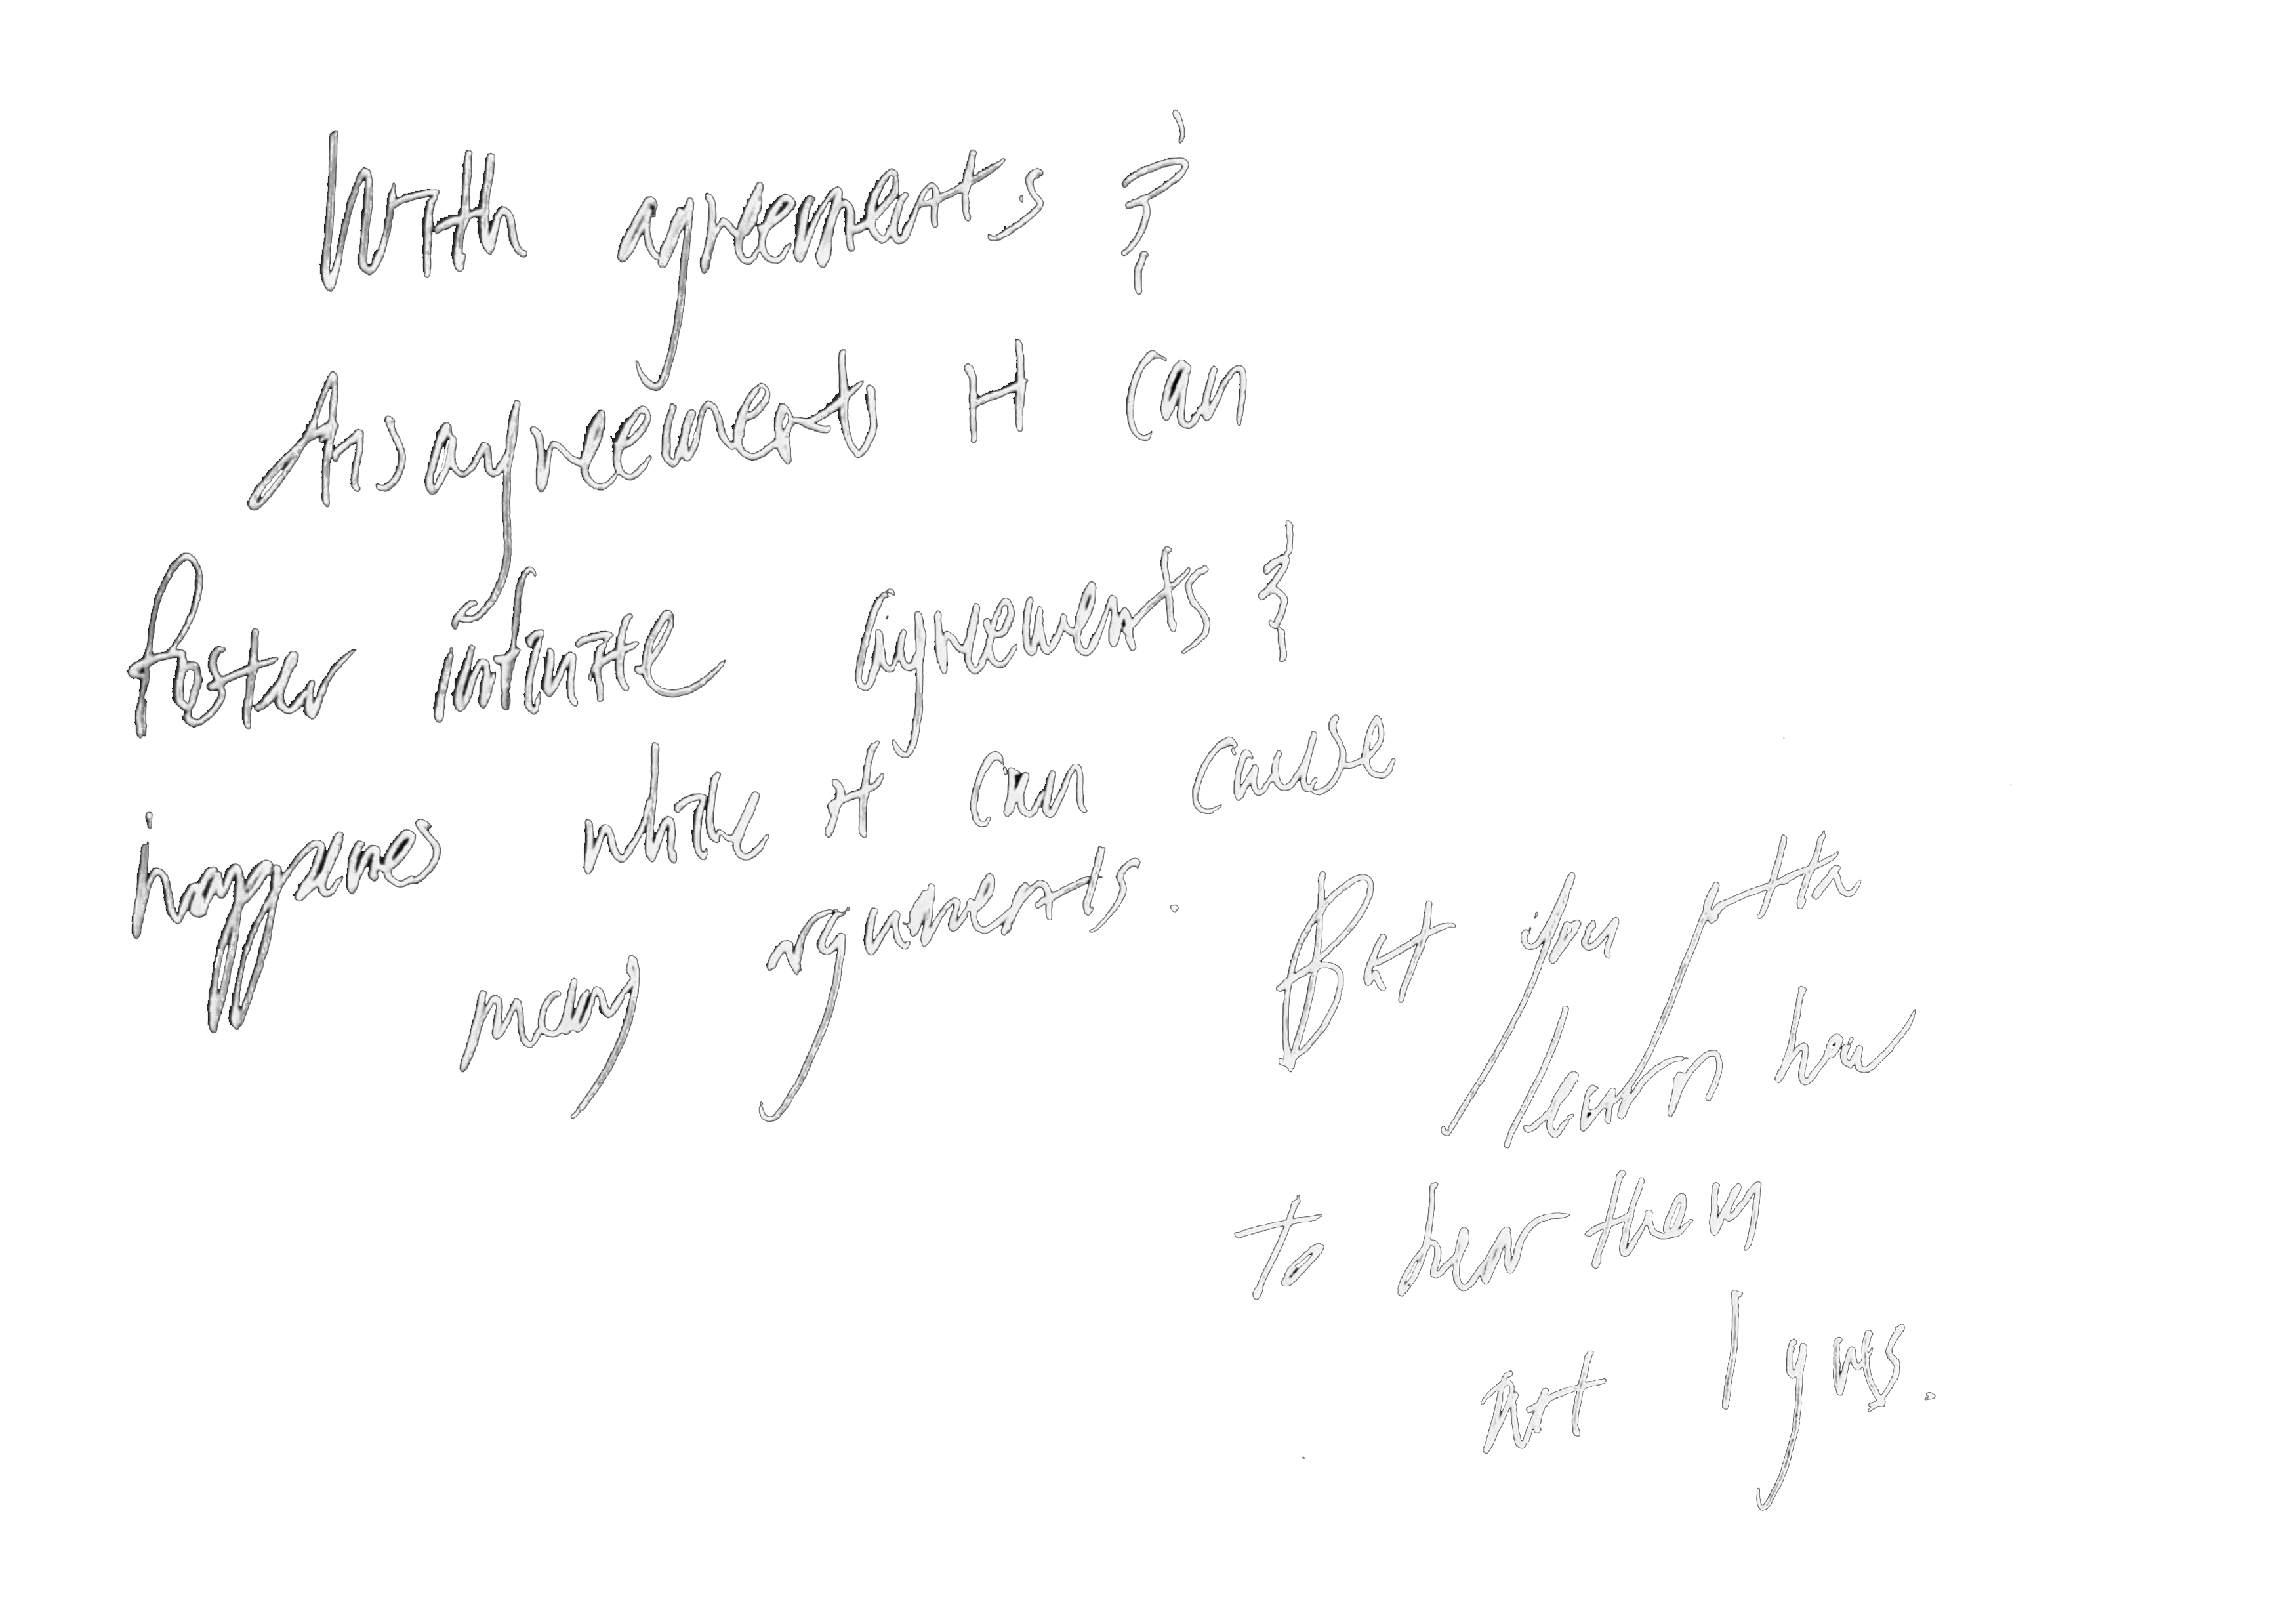 With agreements &
disagreements it can
foster infinite agreements &
happenes while it can cause
many arguments.
But you gotta
learn how
to hear them
not I gues.